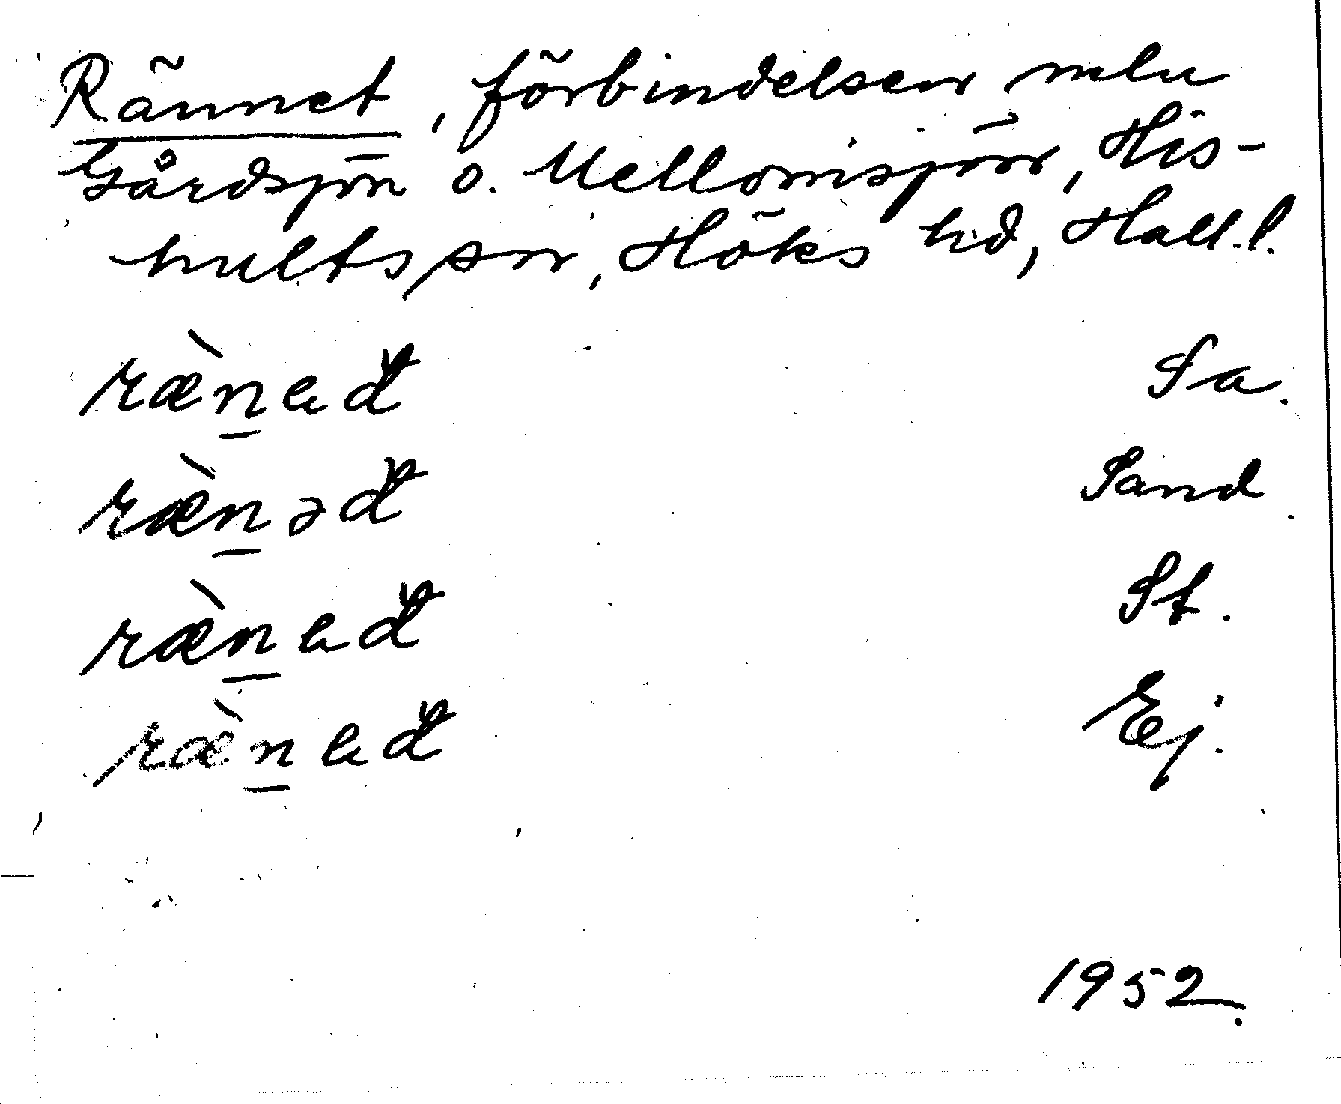 Rännet, förbindelsen mln
Gårdsjön o. Mellomsjön, His-
hults sn, Höks hd, Hall. l.
ræ̀n̲ad Sa.
ræ̀n̲əd Sand
ræ̀n̲ad St.
ræ̀n̲ad Ej.
1952.